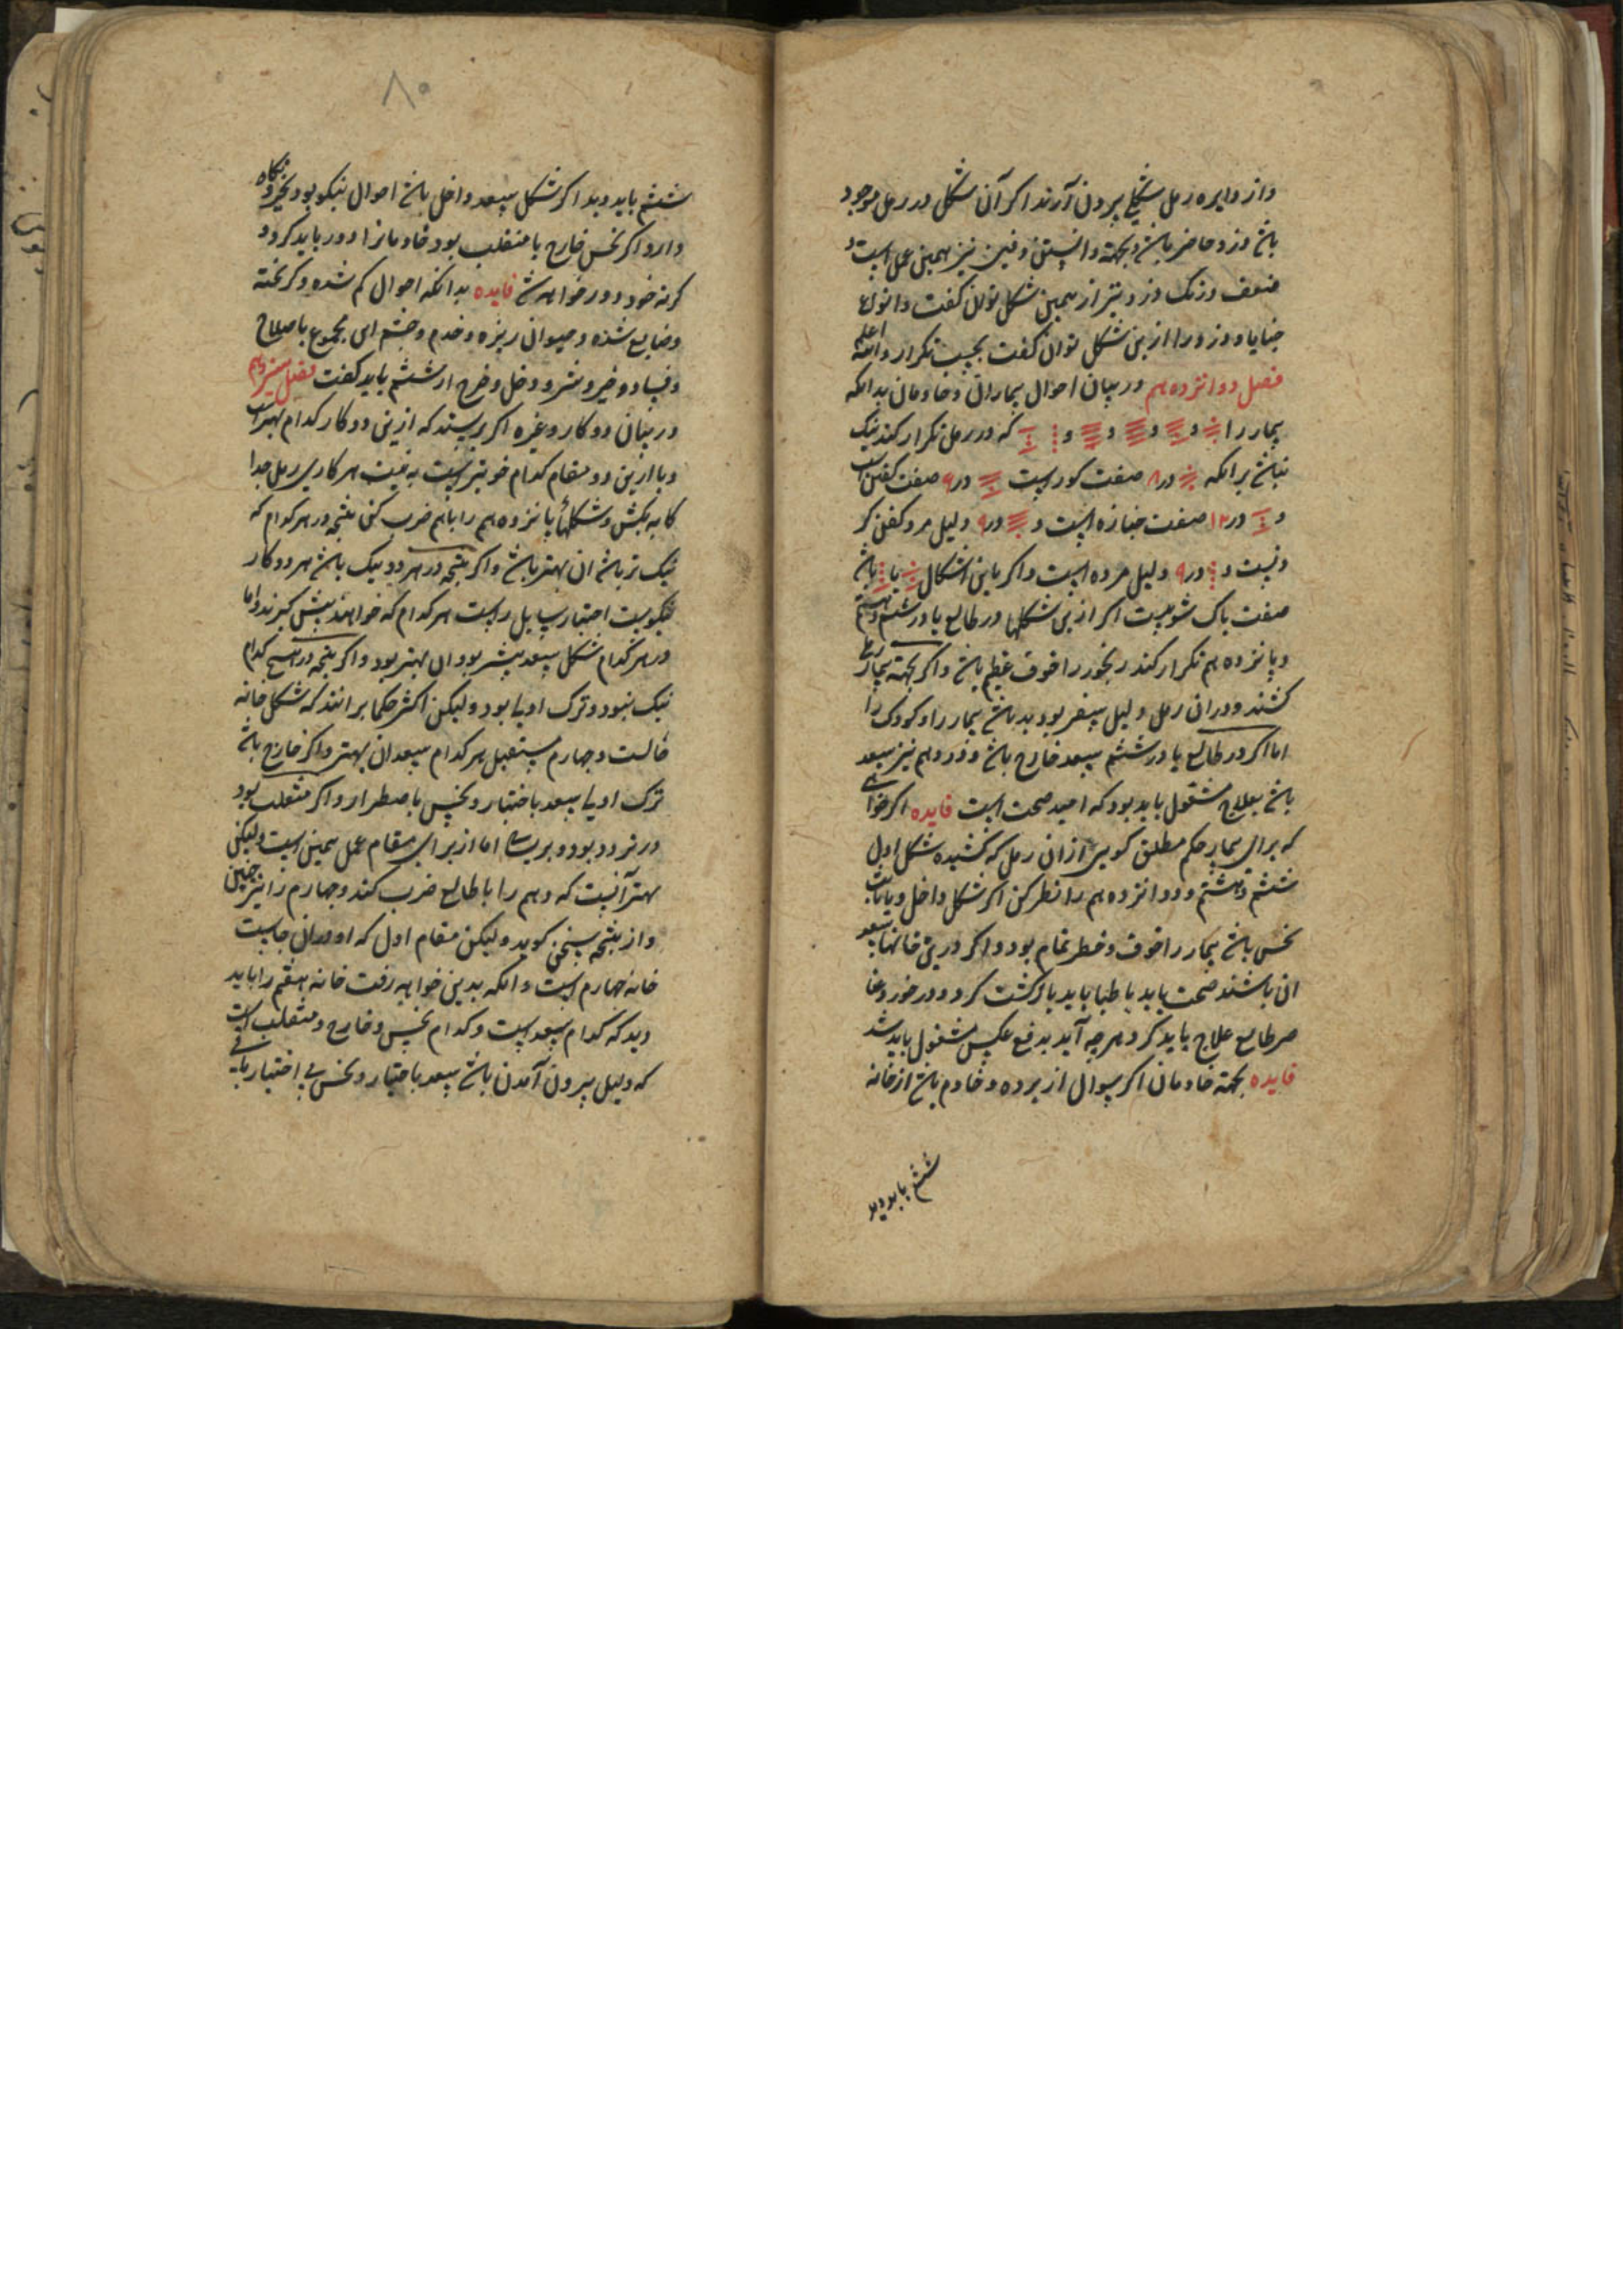 واز دایره رمل شکلی بیرون آرند اکر آن شکل در رمل موجود
باشد دزد حاضر باشد و بجهة دانستن دفین نیز همین عمل است و
ضعف ورنک دزد نیز از همین شکل توان کفت و انواع
خبایا و دزد را ازین شکل توان کفت بحسب تکرار والله اعلم
فصل دوانزدهم در بیان احوال بیماران وخادمان بدانکه
بیمار را و و و و و که در رمل تکرار کند نیک
نباشد برانکه در ۸ صفت کورست در ۹ صفت کفن است
و در ۱۲ صفت جنازه است و در ۹ دلیل مرد کفن کر
ونیست و در ۹ دلیل مرده است واکر باین اشکال یا باشد
صفت پاک شویست اکر ازین شکلها در طالع یا در ششم وهشتم
وپانزدهم تکرار کند رنجور را خوف عظیم باشد واکر بجهة بیمار رملی
کشند ودران رمل دلیل سفر بود بد باشد بیمار را وکودک را
اما اکر در طالع یا در ششم سعد خارج باشد ودر دهم نیز سعد
باشد بعلاج مشغول باید بود که امید صحت است فایده اکر خواهی
که برای بیمار حکم مطلق کویی ازان رمل که کشیده شکل اول
ششم وهشتم ودوانزدهم را نظر کن اکر شکل داخل ویا ثابت
نحس باشد بیمار را خوف وخطر تمام بود واکر درین خانها سعد
ان باشند صحت یابد باطبا باید بازکشت کرد ودرخور
هر طالع علاج باید کرد وهرچه آید بدفع عکس مشغول باید شد
فایده بجهة خادمان اکر سوال از برده وخادم باشد از خانه
ششم باید دید
۸۰
ششم باید دید اکر شکل سعد داخل باشد احوال نیکو بود بخیر نکاه
دارد اکر نحس خارج یا منقلب بود خادمانرا دور باید کرد و
کرنه خود دور خواهد شد فایده بدانکه احوال کم شده وکریخته
وضایع شده وحیوان ریزه وخدم وحشم این مجموع باصلاح
وفساد وخیر وشر ودخل وخرج از ششم باید کفت فصل سیزدهم
در بیان دو کار وغیره اکر پرسند که ازین دو کار کدام بهتر است
ویا ازین دو مقام کدام خوبتر است به نیت هر کاری رمل جدا
کانه بکش وشکلهای پانزدهم را باهم ضرب کنی نتیجه در هر کدام که
نیک تر باشد ان بهتر باشد واکر نتیجه در هر دو نیک باشد هر دو کار
نیکوست اختیار سایل راست هر کدام که خواهد پیش کیرد واما
در هر کدام شکل سعد بیشتر بود ان بهتر بود واکر نتیجه در هیچ کدام
نیک نبود وترک اولی بود ولیکن اکثر حکما برانند که شکل خانه
ثالث وچهارم مستقبل هر کدام سعد ان بهتر واکر خارج باشد
ترک اولی سعد باختیار ونحس باضطرار واکر منقلب بود
در تردد بود اما از برای مقام عمل همین است ولیکن
بهتر آنست که دهم را با طالع ضرب کند وچهارم را نیز چنین
واز نتیجه سخن کوید ولیکن مقام اول که او دران جاست
خانه چهارم است وانکه بدین خواهد رفت خانه هفتم را باید
دید که کدام سعد است وکدام نحس وخارج ومنقلب است
که دلیل بیرون آمدن باشد سعد باختیار ونحس بی اختیار باقی